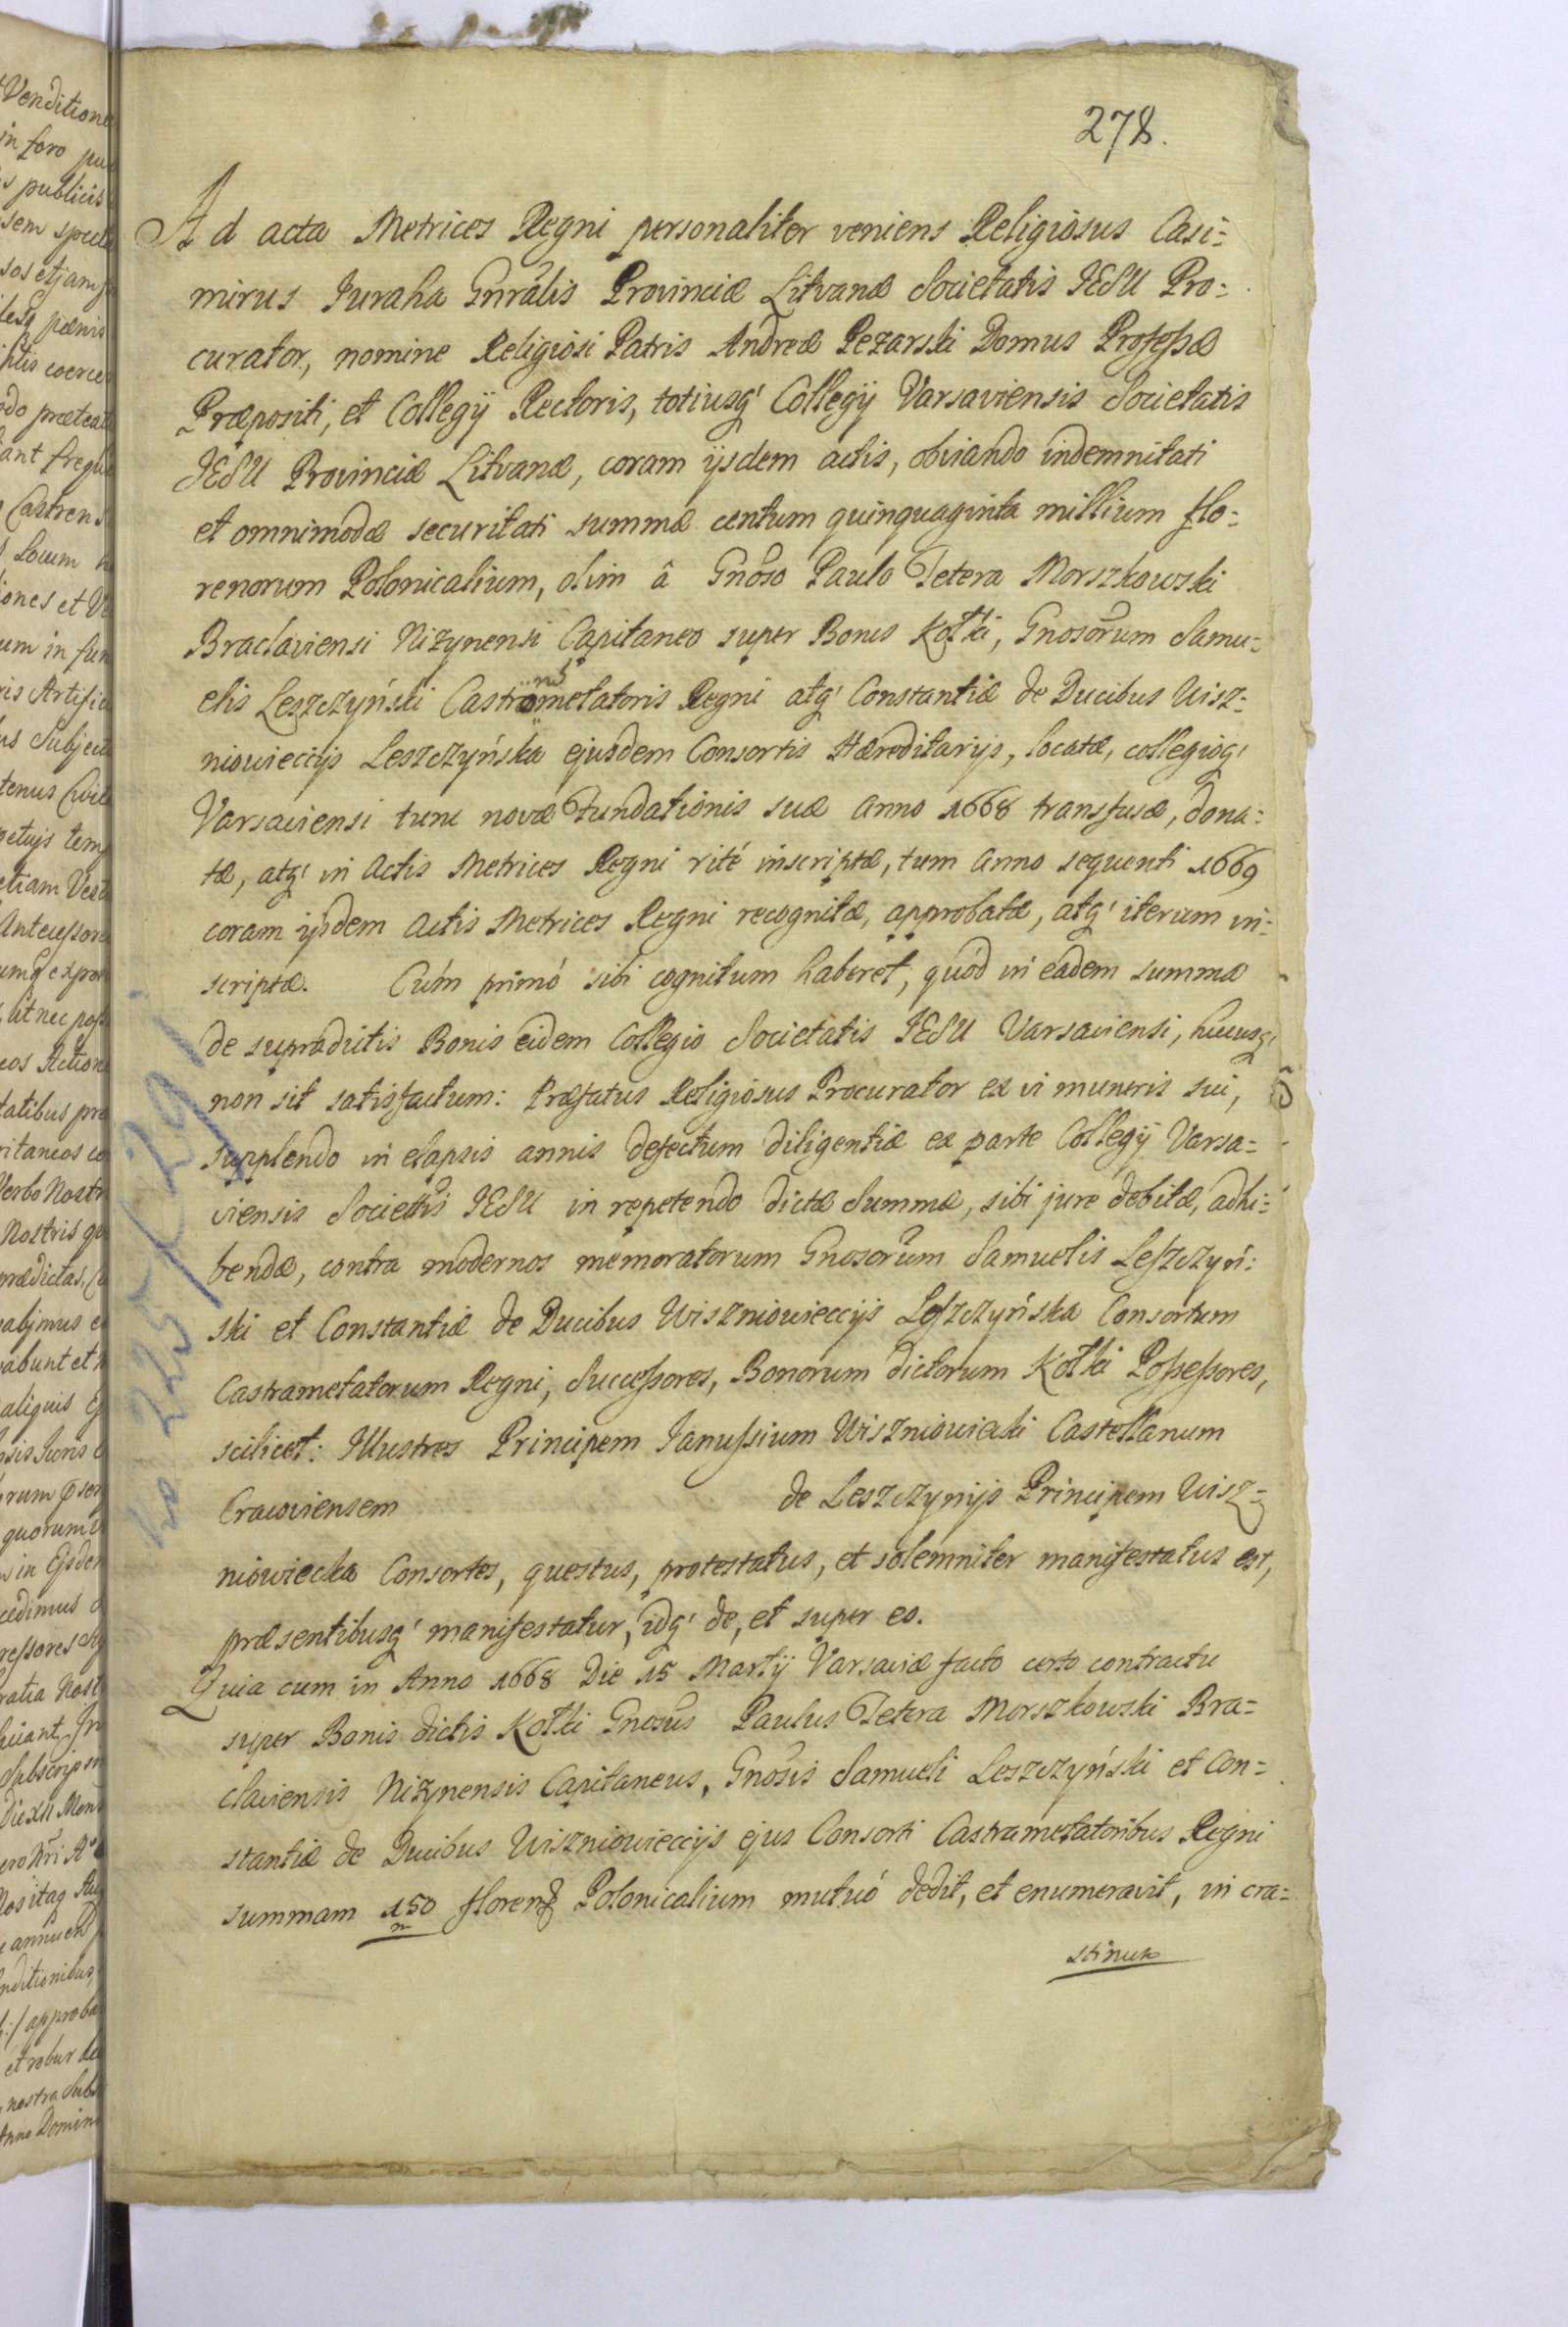 278.
Ad acta Metrices Regni personaliter veniens Religiosus Casi=
mirus Juraha Gnrãlis Provinciæ Litvanæ Societatis JESU Pro=
curator, nomine Religiosi Patris Andreæ Pezarski Domus Professæ
Præpositi, et Collegÿ Rectoris, totiusq' Collegÿ Varsaviensis Societatis
JESU Provinciæ Litvanæ, coram ijsdem actis, obviando indemnitati
et omnimodæ securitati summæ centum quinquaginta millium flo=
renorum Polonicalium, olim â Gnõso Paulo Tetera Morszkowski
Braclaviensi Nizynensi Capitaneo super Bonis Kołki, Gnosõrum Samu=
elis Leszczyński Castrametatoris Regni atq' Constantiæ de Ducibus Wisz=
niowieccijs Leszczyńska ejusdem Consortis Hæreditarijs, locatæ, collegioq'
Varsaviensi tunc novæ Fundationis suæ anno 1668 transfusæ, dona=
tæ, atq' in Actis Metrices Regni rité inscriptæ, tum anno sequenti 1669
coram ijsdem Actis Metrices Regni recognitæ, approbatæ, atq' iterum in=
scriptæ. Cúm primó sibi cognitum haberet, quód in eadem summa
de supradictis Bonis eidem Collegio Societatis JESU Varsaviensi, hucusq'
non sit satisfactum: Præfatus Religiosus Procurator ex vi muneris sui,
supplendo in elapsis annis defectum diligentiæ ex parte Collegÿ Varsa=
viensis Societtĩs JESU in repetendo dictæ Summæ, sibi jure debitæ, adhi=
bendæ, contra modernos memoratorum Gnosorũm Samuelis Leszczyń=
ski et Constantiæ de Ducibus Wiszniowieccijs Leszczyńska Consortum
Castrametatorum Regni, Successores, Bonorum dictorum Kołki Possessores,
scilicet: Illustres Principem Janussium Wiszniowiecki Castellanum
Cracoviensem de Leszczynijs Principem Wisz=
niowiecka Consortes, questus, protestatus, et solemniter manifestatus est,
præsentibusq' manifestatur, idq' de, et super eo.
Quia cum in Anno 1668 Die 15 Martÿ Varsaviæ facto certo contractu
super Bonis dictis Kołki Gnosũs Paulus Tetera Morszkowski Bra=
claviensis Nizynensis Capitaneus, Gnosĩs Samueli Leszczyński et Con=
stantiæ de Ducibus Wiszniowieccijs ejus Consorti Castrametatoribus Regni
summam 150/m floren Polonicalium mutuó dedit, et enumeravit, in cra=
stinum